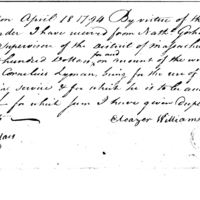 on April 18 1794 By virtue of th
nder I have received from Nathl Gorh
Supervisor of the District of Massachu
hundred Dollars on amount of the w
Cornelius Lyman, being for the use of
service & for which he is to be ac
for which sum I have given Dupl
Eleazer Williams